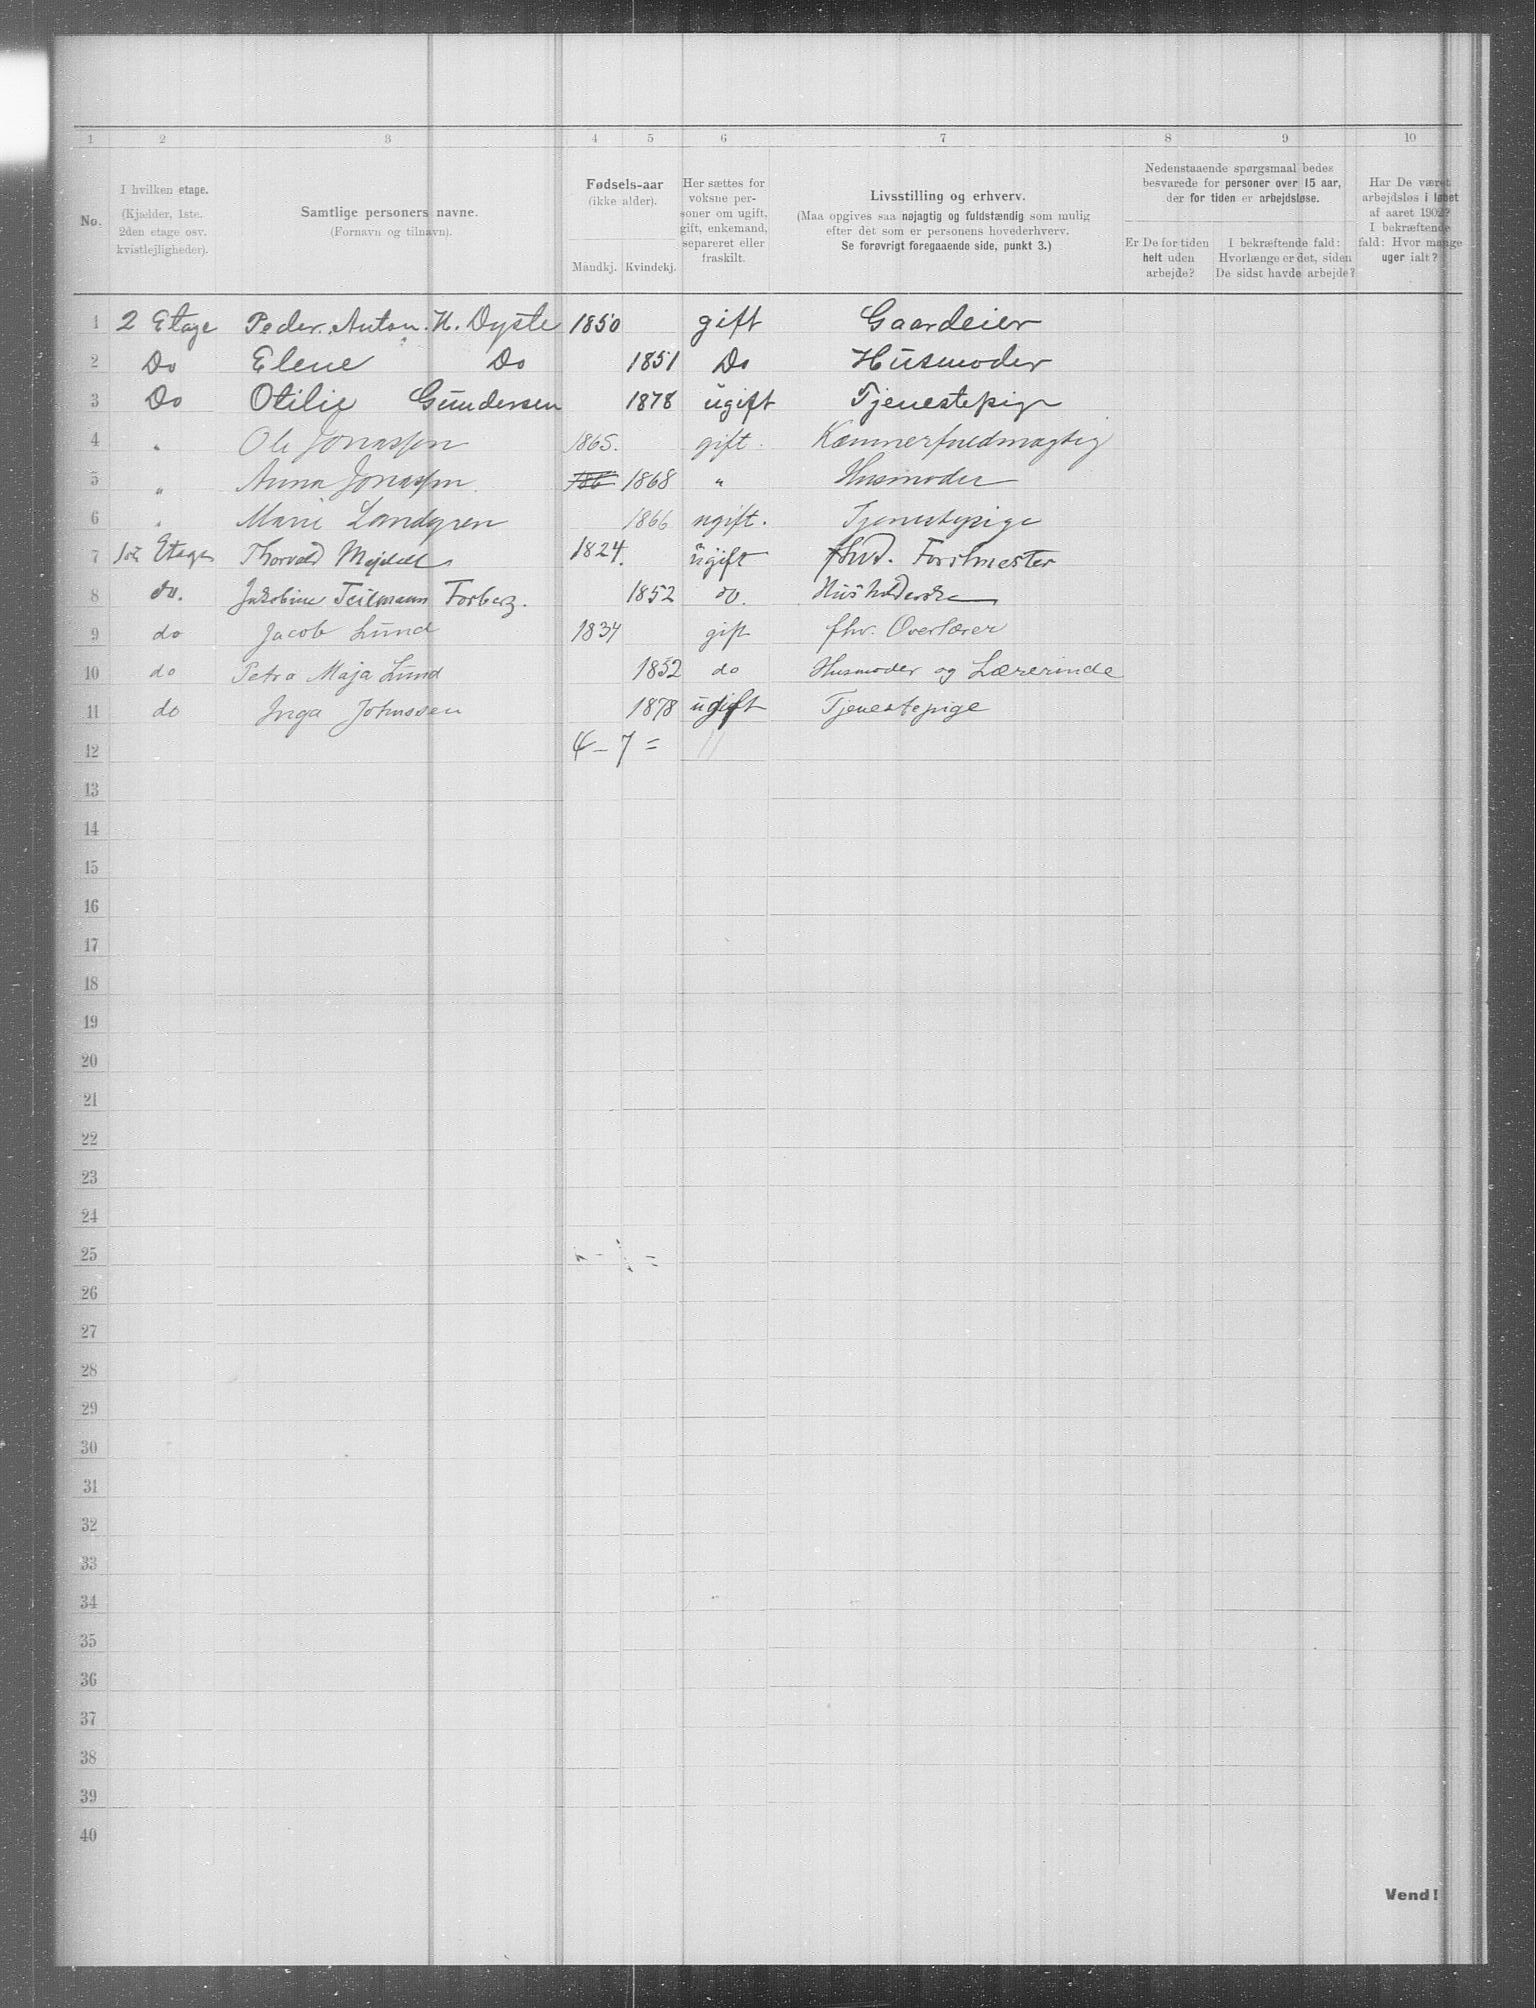 1 2 3 4 5 6 7 8 9 10
No.
I hvilken etage.
(Kjælder, 1ste.
2den etage osv.
kvistlejligheder).
Samtlige personers navne.
(Fornavn og tilnavn).
Fødsels-aar
(ikke alder).
Mandkj. Kvindekj.
Her sættes for
voksne per-
soner om ugift,
gift, enkemand,
separeret eller
fraskilt.
Livsstilling og erhverv.
(Maa opgives saa nøjagtig og fuldstændig som mulig
efter det som er personens hovederhverv.
Se forøvrigt foregaaende side, punkt 3.)
Nedenstaaende spørgsmaal bedes
besvarede for personer over 15 aar,
der for tiden er arbejdsløse.
Er De for tiden
helt uden
arbejde?
I bekræftende fald:
Hvorlænge er det, siden
De sidst havde arbejde?
Har De været
arbejdsløs i løbet
af aaret 1902?
I bekræftende
fald: Hvor mange
uger ialt?
1 2 Etage Peder. Anton. H. Dyste 1850 gift Gaardeier
2 Do Elene Do 1851 Do Husmoder
3 Do Otilie Gundersen 1878 ugift Tjenestepige
4 " Ole Jonassen 1865. gift. Kæmnerfuldmægtig
5 " Anna Jonassen 186 1868 " Husmoder
6 " Marie Landgren 1866 ugift. Tjenestepige
7 1ste Etage Thorvald 1824. ugift fhv. Forstmester
8 do. Jakobine Teilmann Forberg. 1852 do. Husholderske
9 do Jacob Lund 1834 gift fhv. Overlærer
10 do Petra Maja Lund 1852 do Husmoder og Lærerinde
11 do Inga Johnssen 1878 ugift Tjenestepige
12 4 - 7 = 11
13
14
15
16
17
18
19
20
21
22
23
24
25
26
27
28
29
30
31
32
33
34
35
36
37
38
39
40
Vend!